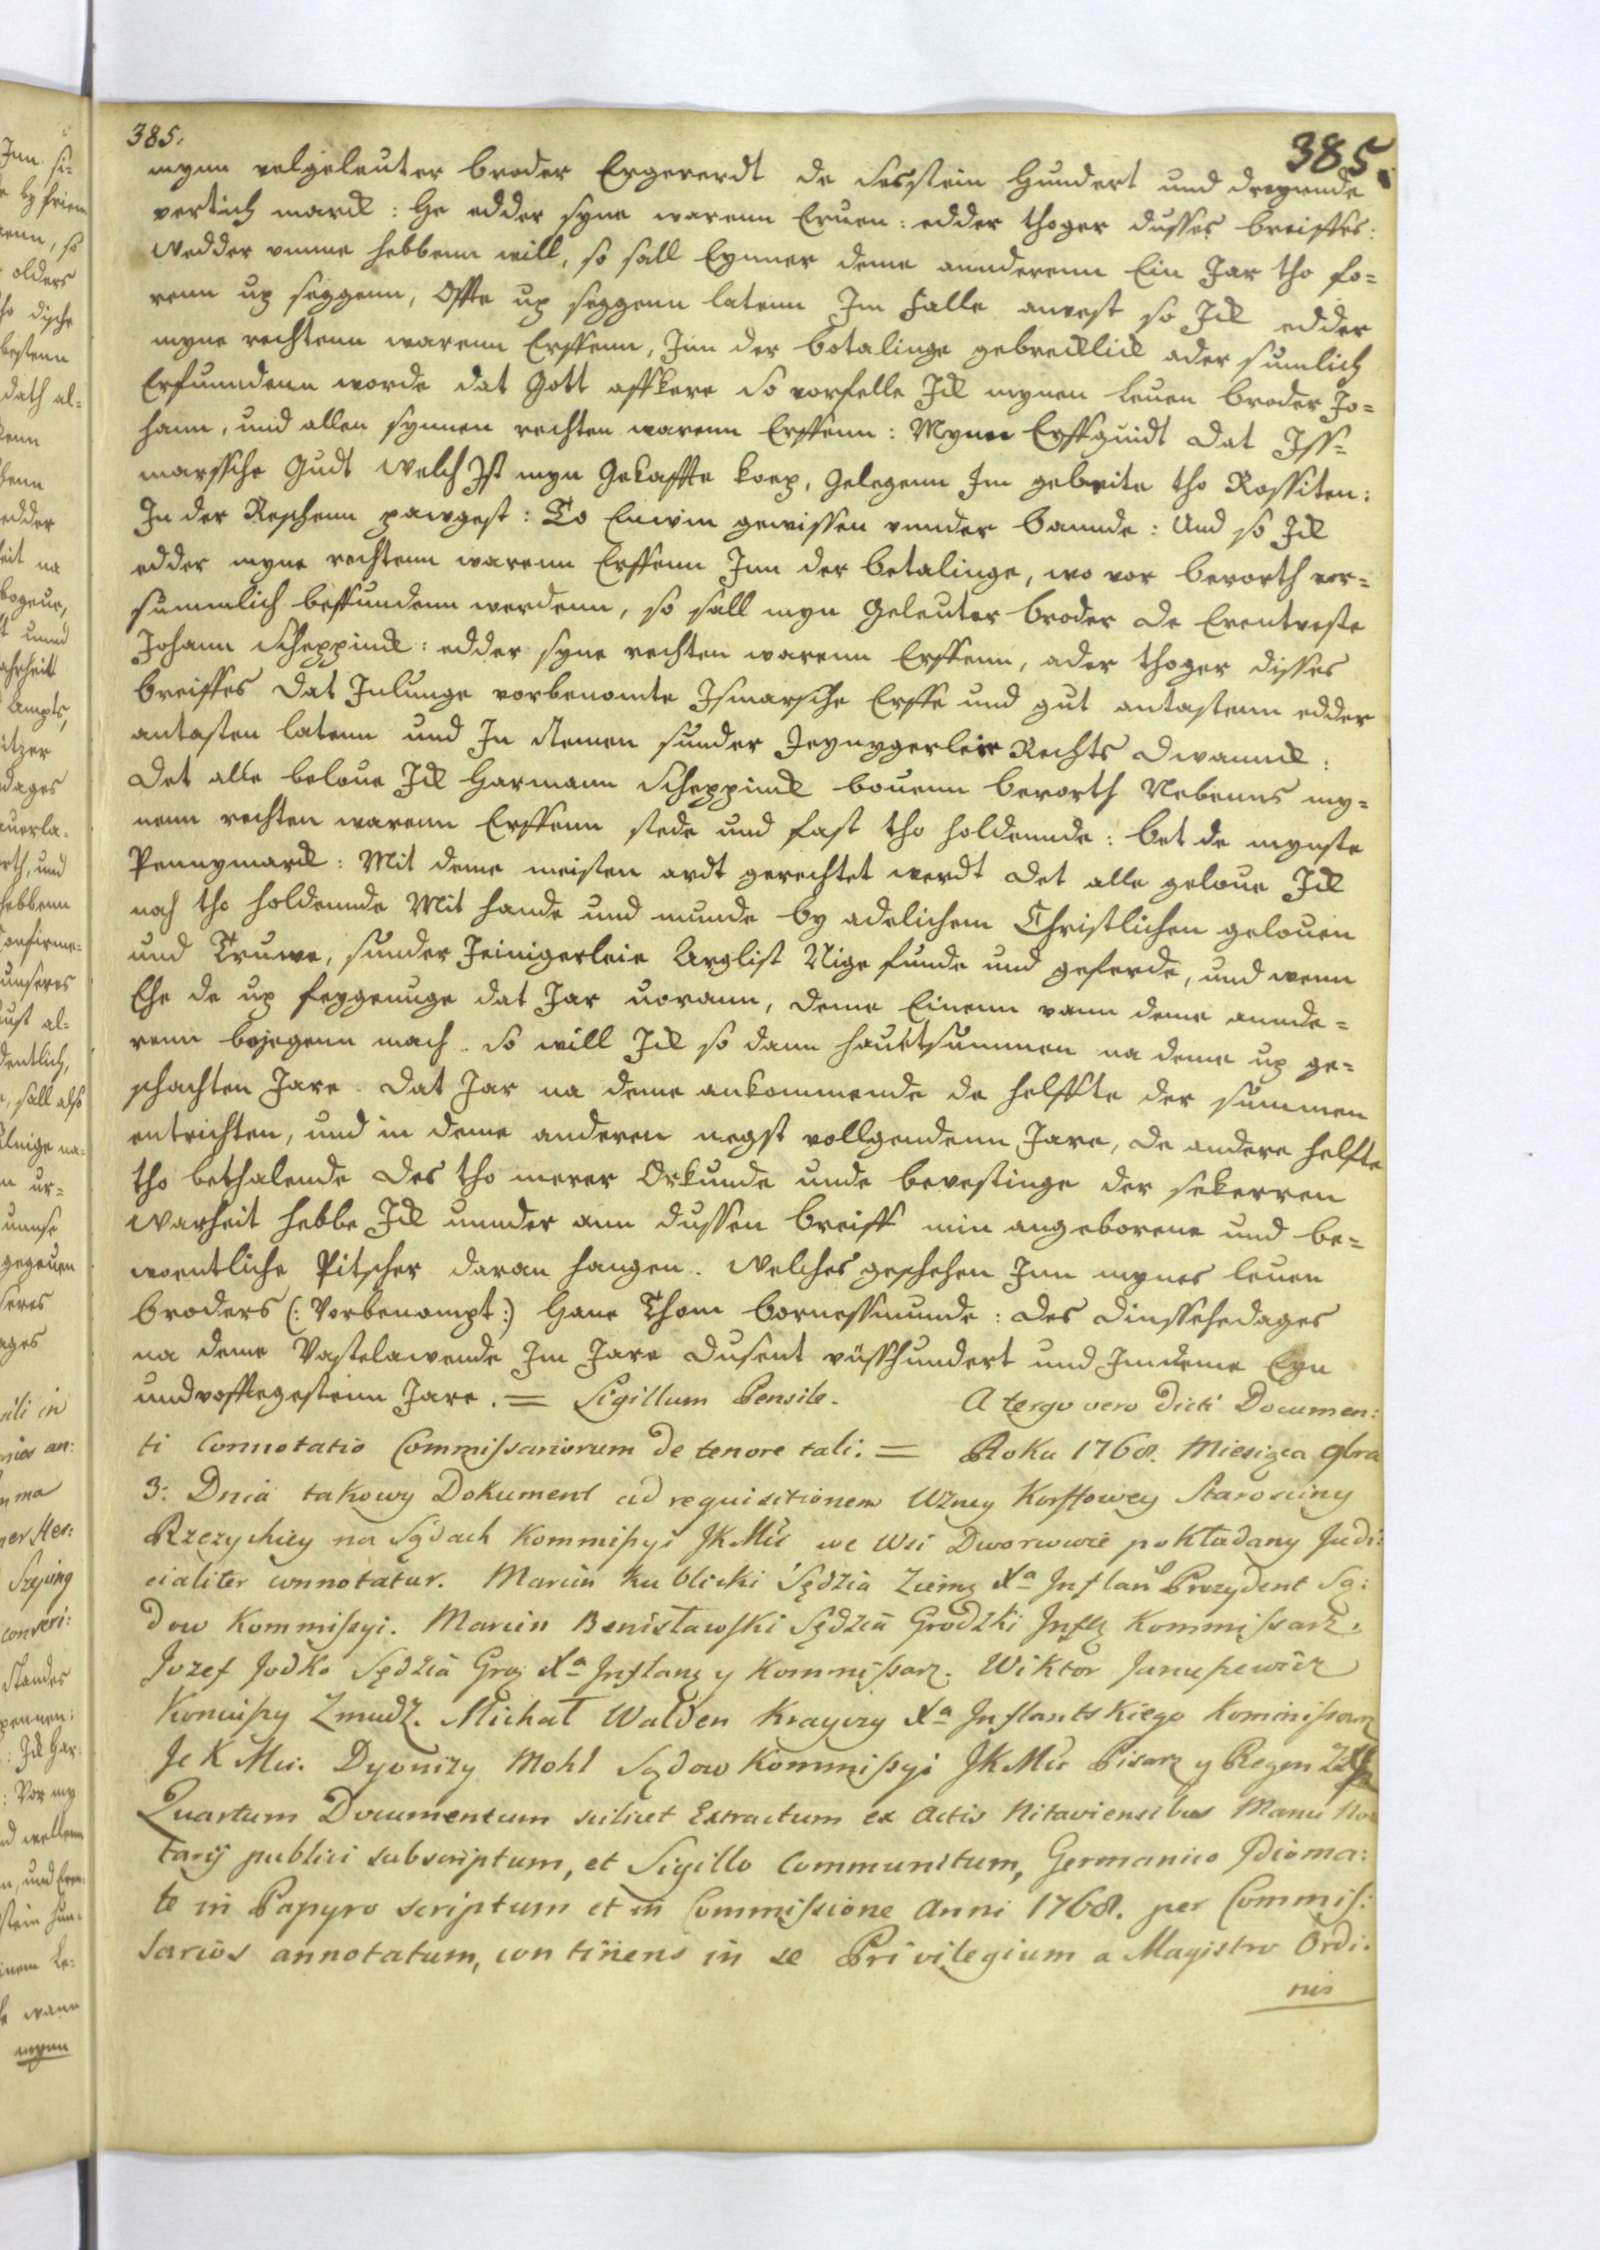 385.
385.
mynn velgeleuter broder Ergererdt de Sesstein Hundert und dreyunde
vertich marck: He edder syne warenn Eruen: edder thoger dusses breiffes:
Wedder umme hebbenn will, so sall Eynner deme annderenn Ein Jar tho fo=
renn up seggenn, Offte up seggenn latenn Im Falle auerst so Ick edder
myne rechtenn warenn Erffenn, Inn der botalinge gebrecklick ader sumlich
Erfunndenn worde dat Gott affkere So vorfelle Ick mynen leuen broder Jo=
hann, und allen synnen rechten warenn Erffenn: Mynne Erffguidt Dat Iss=
marssche Gudt Welch Ist myn Gekaffte koep, Gelegenn Im gebeite tho Rossiten:
In der Reschenn pawgest: To Einem gewissen unnder bannde: Und so Ick
edder myne rechtenn warenn Erffenn Inn der betalinge, wo vor berorth vor=
sumnlich beffundenn werdenn, so sall myn Geleuter broder De Erentveste
Johann Scheppinck: edder syne rechten warenn Erffenn, ader thoger disses
breiffes Dat Inlunge vorbenomte Ismarsche Erffe und gut antastenn edder
antasten latenn und In Nemen sunder Jeynygerleie Rechts Dwannck:
Det alle beloue Ick Harmann Scheppinck bouenn berorth Nebenns my=
nenn rechten warenn Erffenn stede und fast tho holdennde: bet de mynste
Pennymarck: Mit deme meisten ardt gerechtet werdt Det alle geloue Ick
noch tho holdennde Mit hande und munde by adelichem Christlichen gelouen
und Truwe, sunder Jeinigerleie Arglist Nige funde und geferde, und wenn
Ehe de up segenuge dat Jar uorann, deme Einenn vann deme annde=
renn bojegenn mach. So will Ick so dann hauetsummen na deme up ge=
schachten Jare. Dat Jar na deme ankommende de helffte der summen
entrichten, und in deme anderen negst vollgendenn Jare, de andere helfte
tho bethalende Des tho merer Orkunde unde bevestinge der sekerren
Warheit hebbe Ick unnder ann dussen breiff min angeborene und be=
woentliche Pitscher daran hangen. Welches geschehen Inn mynes leuen
broders (: Vorbenompt :) Haue Thom bornessmunde: Des Dinsschedages
na deme Vastelawende Im Jare Dusent vüffhundert und Imdeme Eyn
undvofftegesteinn Jare. = Sigillum Pensile. A tergo vero dicti Documen:
ti Connotatio Commissariorum de tenore tali. = Roku 1768. Miesiąca 9bra
3: Dnia takowy Dokument ad requisitionem Wżney Korffowey Starosciny
Rzezyckiey na Sądach Kommissyi JKMći we Wsi Dworowcie pokładany Judi:
cialiter connotatur. Marcin Kublicki Sędzia Ziemą Xa Inflan Prezydent Są:
dow Kommissyi. Marcin Benisławski Sędzia Grodzki Infl Kommissarz.
Jozef Jodko Sędzia Gro Xa Inflang y Kommissarz. Wiktor Janusewicz
Koniuszy Zmudz. Michał Walden Krayczy Xa Inflantskiego Kommissarz
Je K Mci. Dyonizy Mohl Sądow Kommissyi JKMći Pisarz y Regen
Quartum Documentum scilicet Extractum ex Actis Nitaviensibus Manu No
tarij publici subscriptum, et Sigillo Communitum, Germanico Idioma:
te in Papyro scriptum et in Commissione Anni 1768. per Commis:
sarios annotatum, continens in se Privilegium a Magistro Ordi:
nis